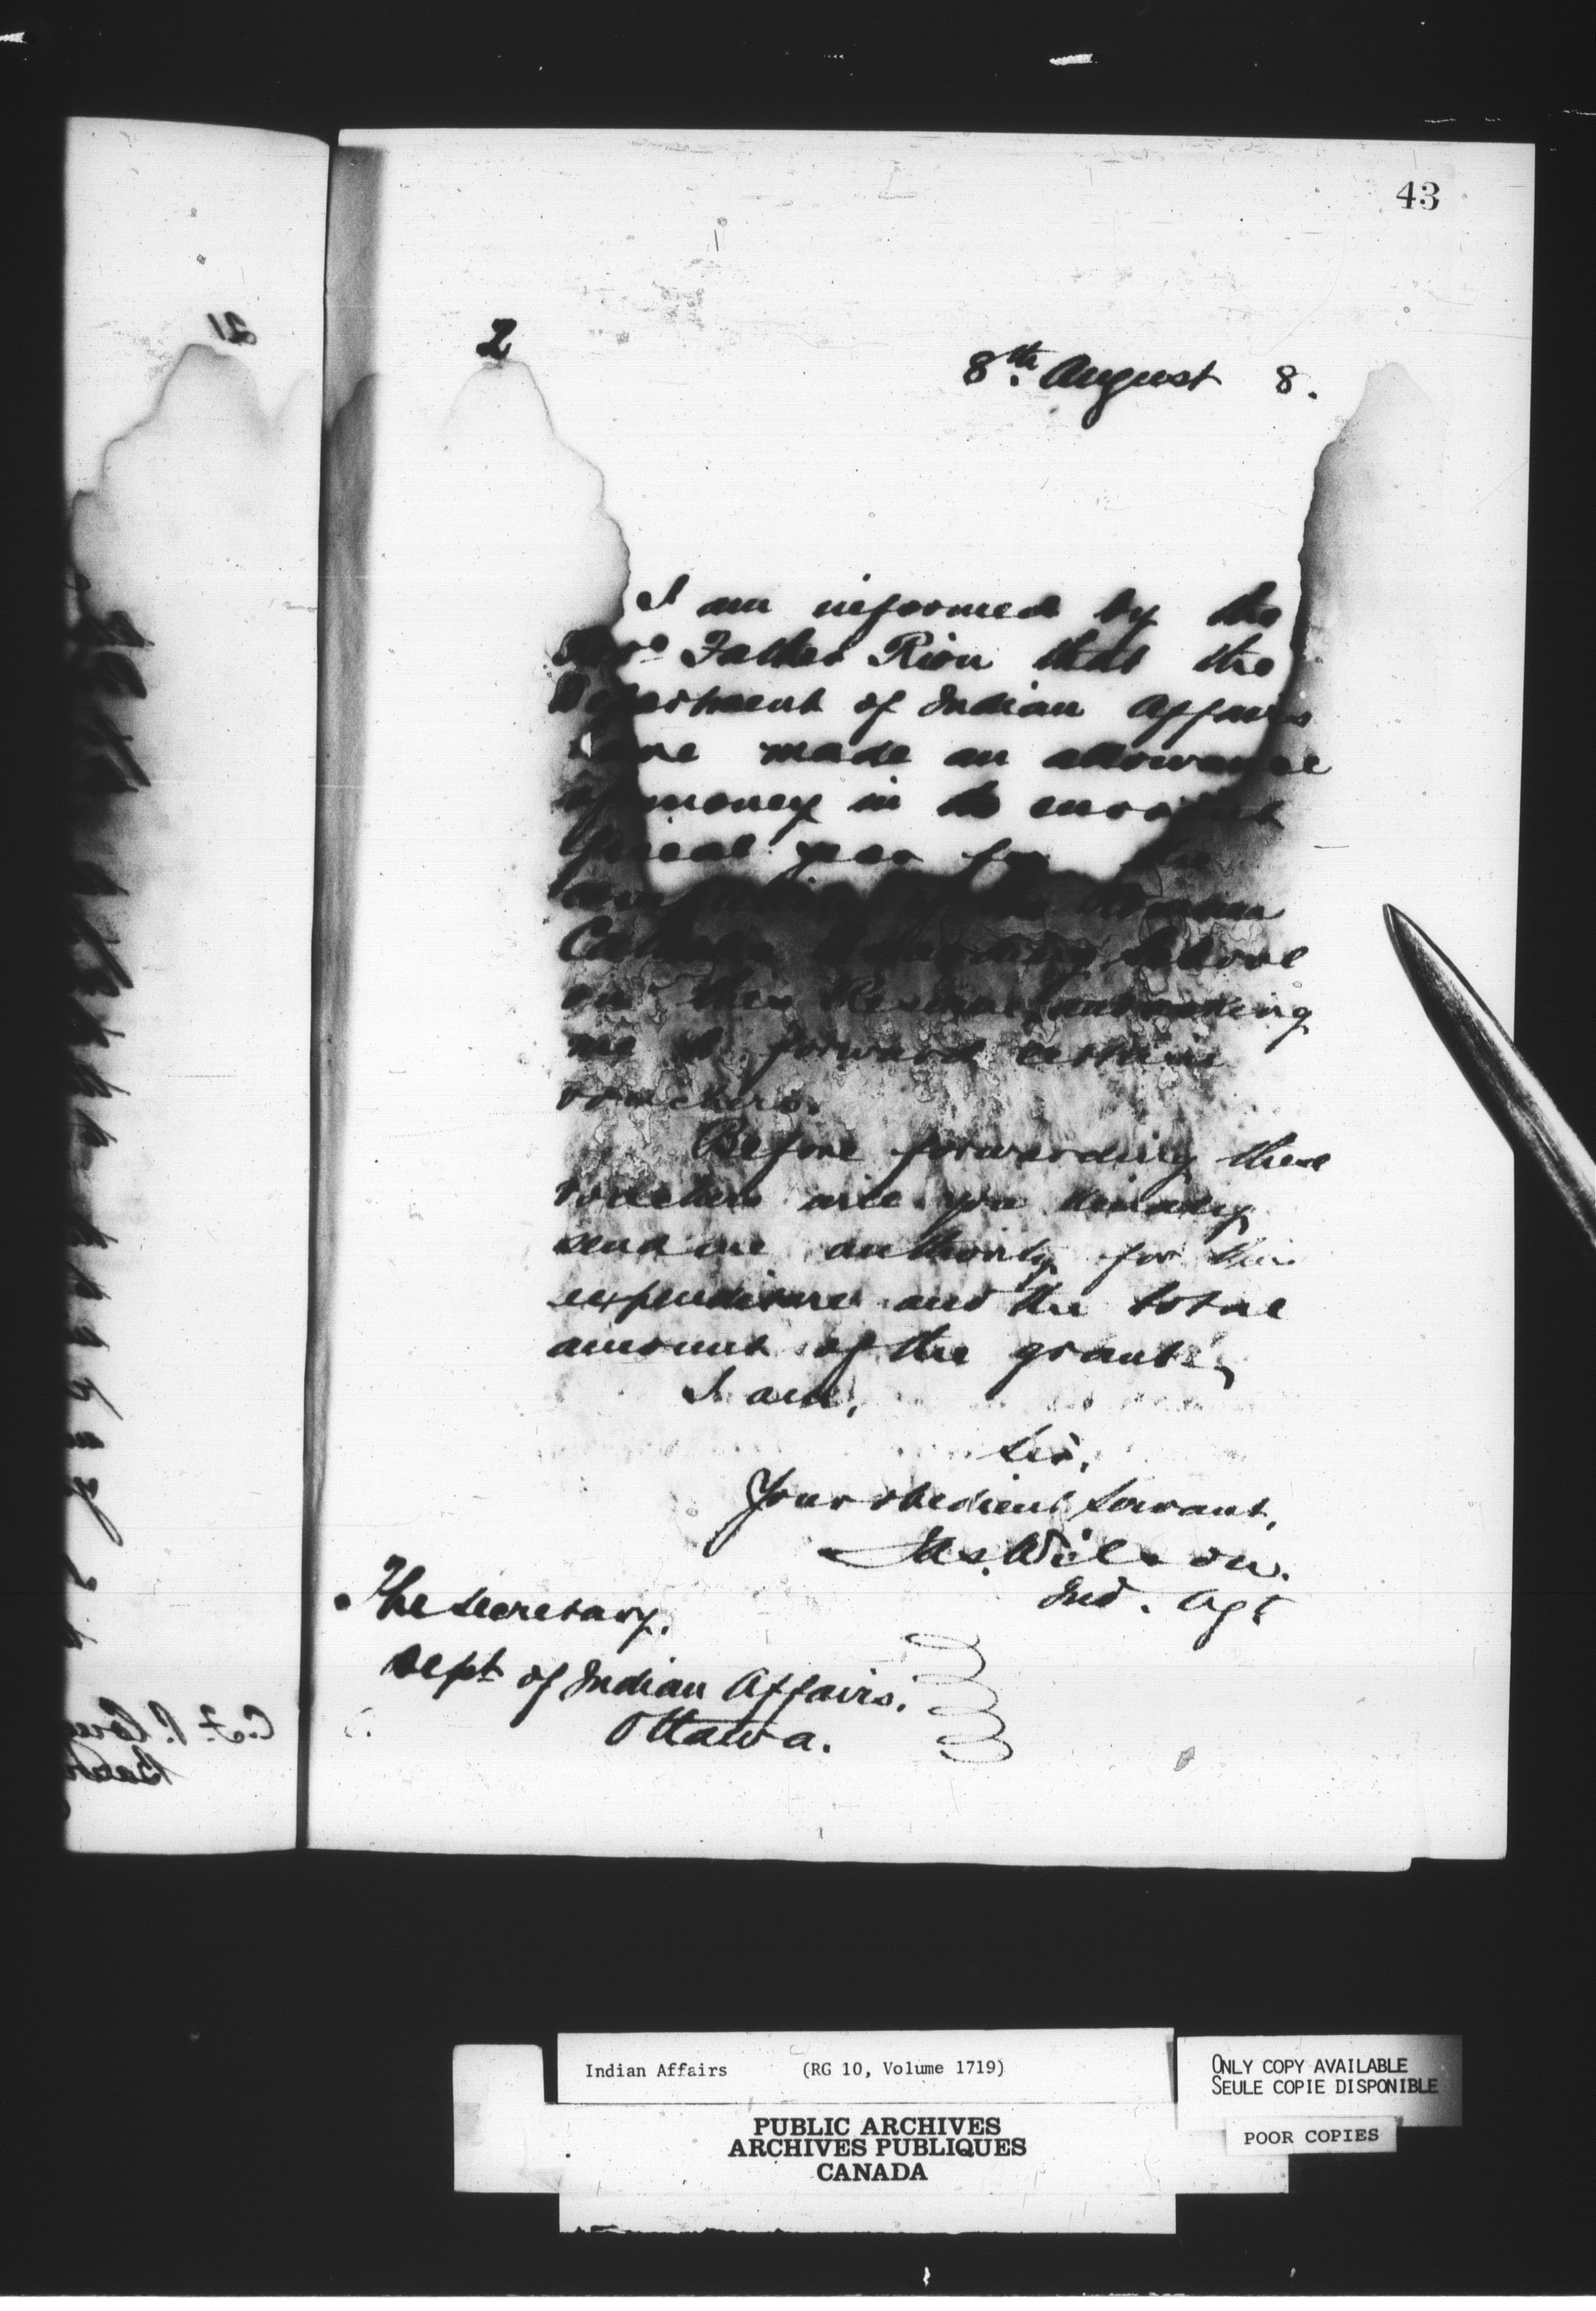 43
2
8th August 8.
I am informed by the
Revd Father Riou that the
Department of Indian Affairs
have made an allowance
of money in the current
fiscal year for the
Roman
Catholic Boarding School
on their Reserve,
me to forward certain
vouchers.
Before forwarding these
vouchers will you kindly
send me authority for this
expenditure and the total
amount of the grant.
I am,
Sir,
Your obedient servant,
Jas. Wilson.
Ind. Agt
The Secretary.
Dept of Indian Affairs.
Ottawa.
Indian Affairs (RG 10, Volume 1719)
PUBLIC ARCHIVES
ARCHIVES PUBLIQUES
CANADA
ONLY COPY AVAILABLE
SEULE COPIE DISPONIBLE
POOR COPIES